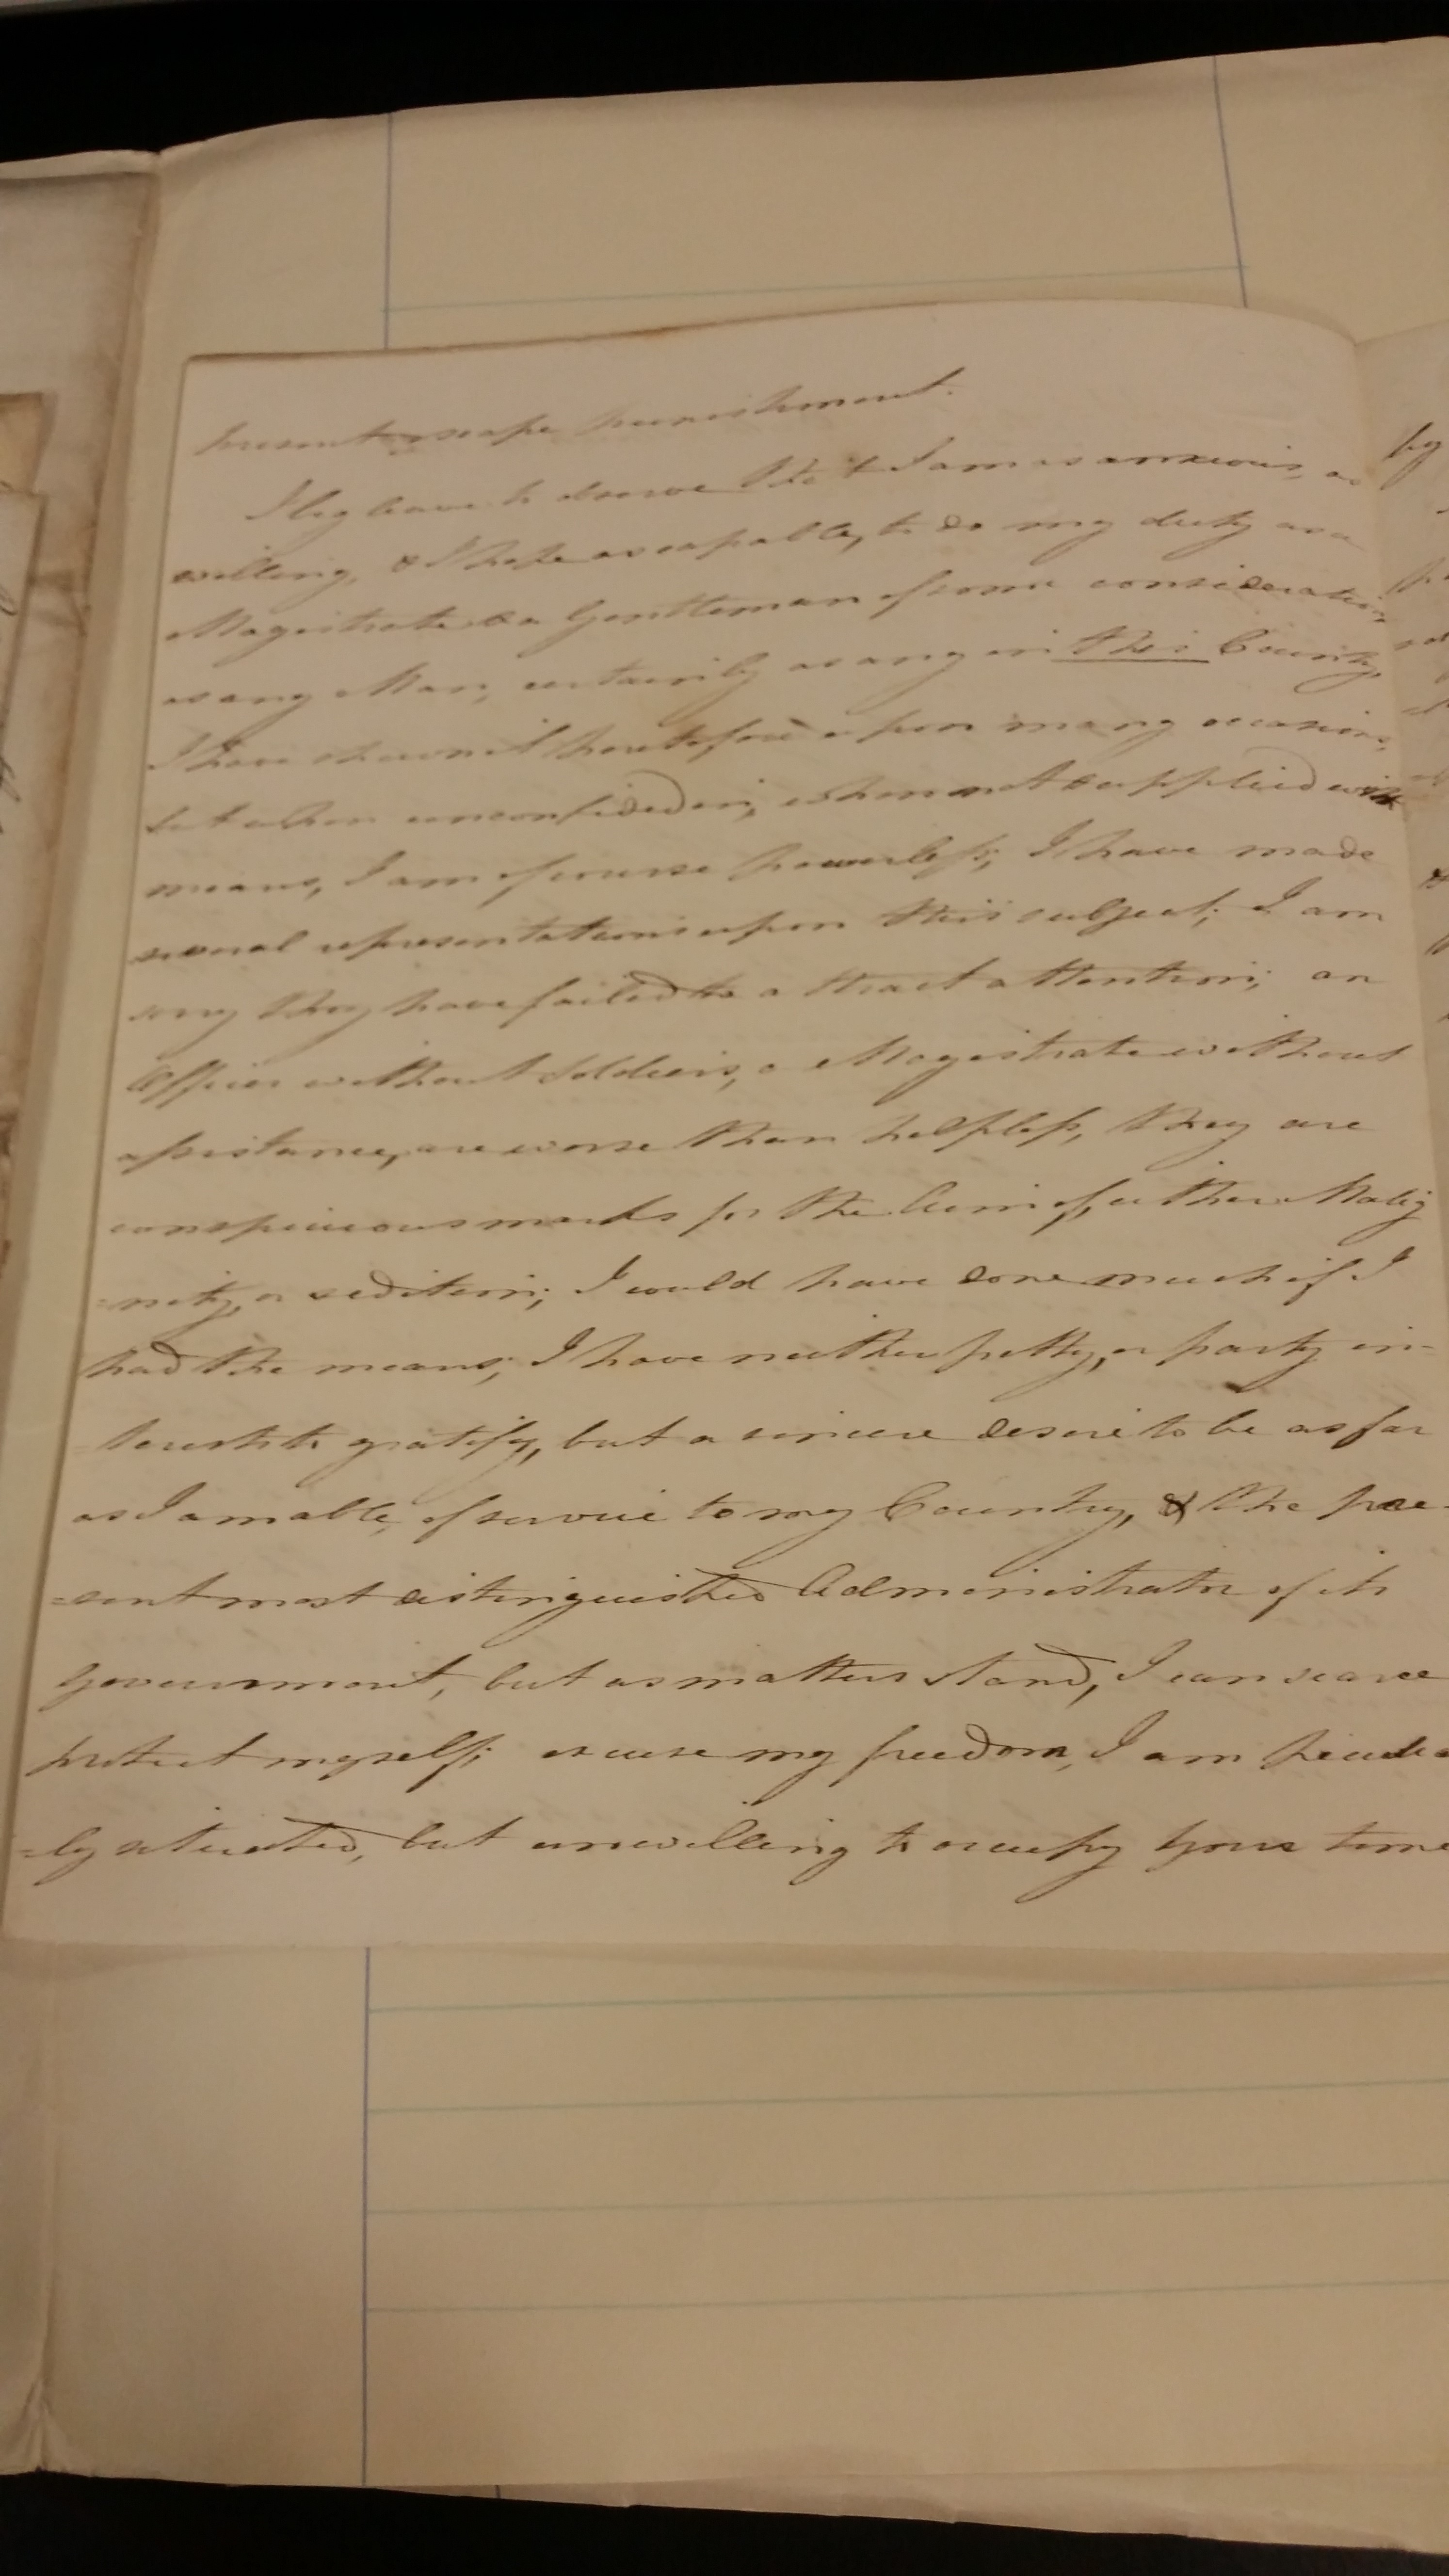 present escape punishment.
I beg leave to observe that I am as anxious, as
willing, & I hope as capable, to do my duty as a
Magistrate & a Gentleman of some consideration
as any Man, certainly as any in this County,
I have shewn it heretofore upon many occasions,
but when unconfided in, when not supplied with
means, I am of course powerless; I have made
several representations upon this subject; I am
sorry they have failed to attract attention; an
Officer without Soldiers, a Magistrate without
assistance, are worse than helpless, they are
conspicuous marks for the Aim of, either Malig
=nity, or sedition; I would have done much if I
had the means; I have neither petty, or party in-
=terests to gratify, but a sincere desire to be as far
as I am able, of service to my Country, & the pre-
=sent most distinguished Administrator of its
government, but as matters stand, I can scarce
protect myself; excuse my freedom, I am
=ly situated, but unwilling to occupy your time
by